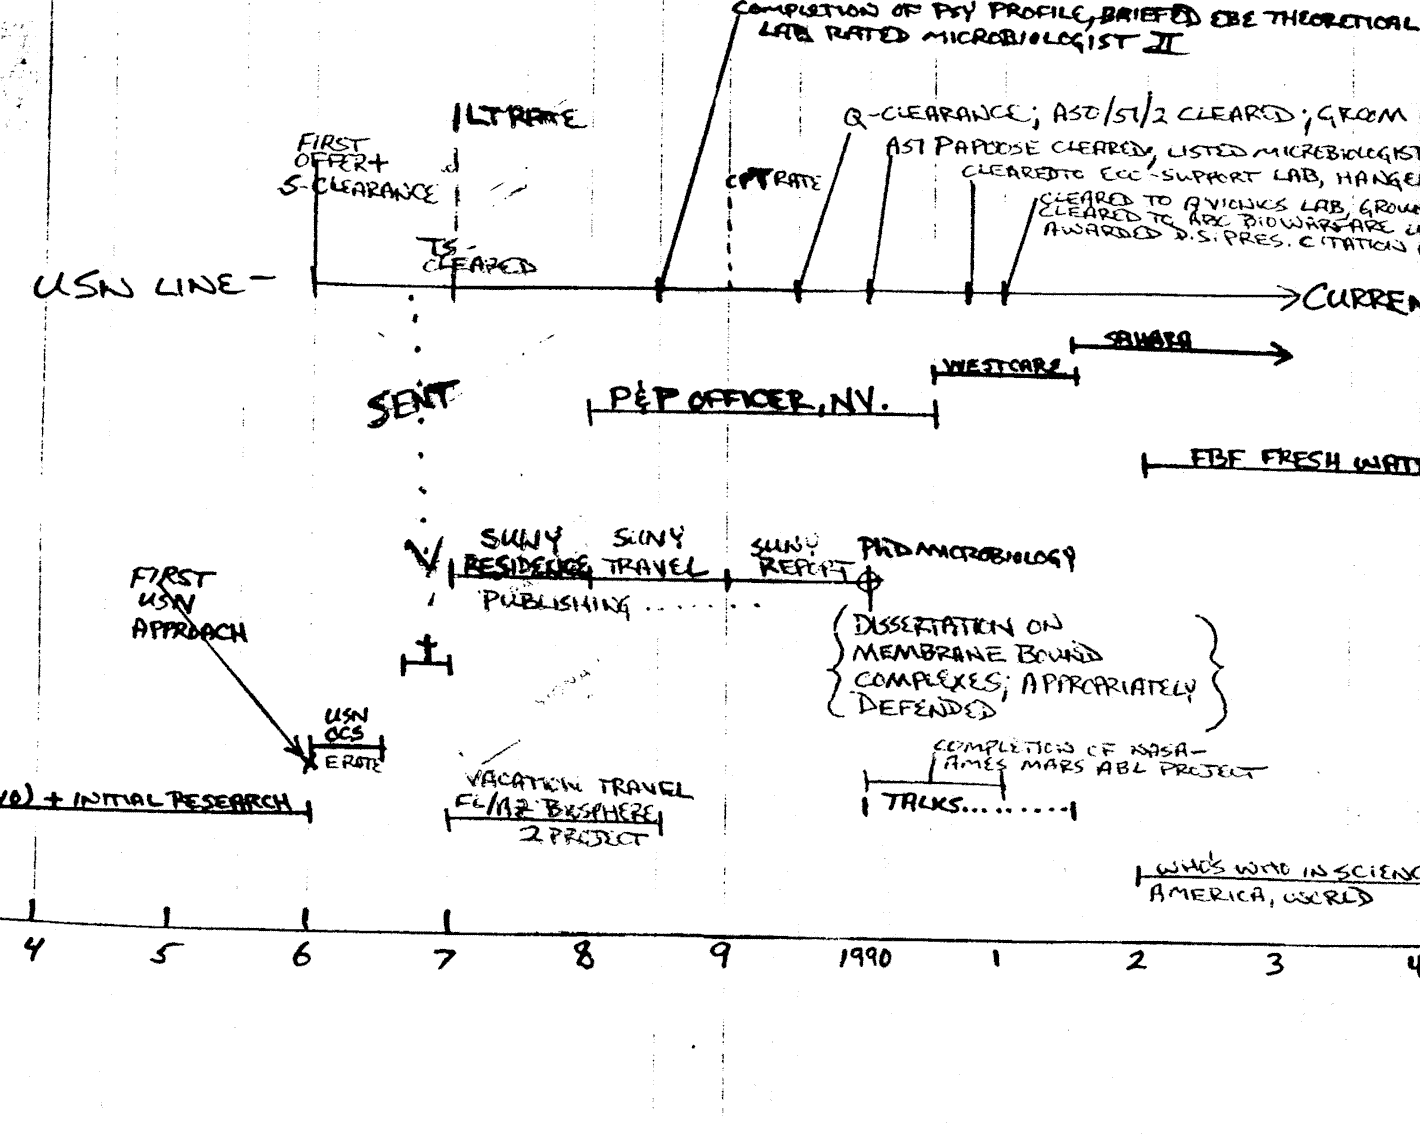 COMPLETION OF PSY PROFILE, BRIEFED EBE THEORETICAL
LAB RATED MICROBIOLOGIST II
LT RATE
Q-CLEARANCE; ASO/51/2 CLEARED; GROOM
FIRST
OFFER+
S-CLEARANCE
AS1 PAPOOSE CLEARED, LISTED MICROBIOLOGIST
CPT RATE
CLEARED TO ECC-SUPPORT LAB, HANGE
CLEARED TO AVIONICS LAB, GROU
CLEARED TO ABC BIOWARFARE L
AWARDED D.S. PRES. CITATION
TS-
CLEARED
USN LINE-
CURREN
SAHARA
WESTCARE
SENT
P&P OFFICER, NV.
EBF FRESH WAT
SUNY
RESIDENCE
SUNY
TRAVEL
SUNY
REPORT
PhD MICROBIOLOGY
PUBLISHING ........
FIRST
USN
APPROACH
DISSERTATION ON
MEMBRANE BOUND
COMPLEXES; APPROPRIATELY
DEFENDED
USN
OCS
E RATE
COMPLETION OF NASA-
AMES MARS ABL PROJECT
VACATION TRAVEL
FL/AZ BIOSPHERE
2 PROJECT
+ INITIAL RESEARCH
TALKS.........
WHO'S WHO IN SCIENC
AMERICA, WORLD
4 5 6 7 8 9 1990 1 2 3 4